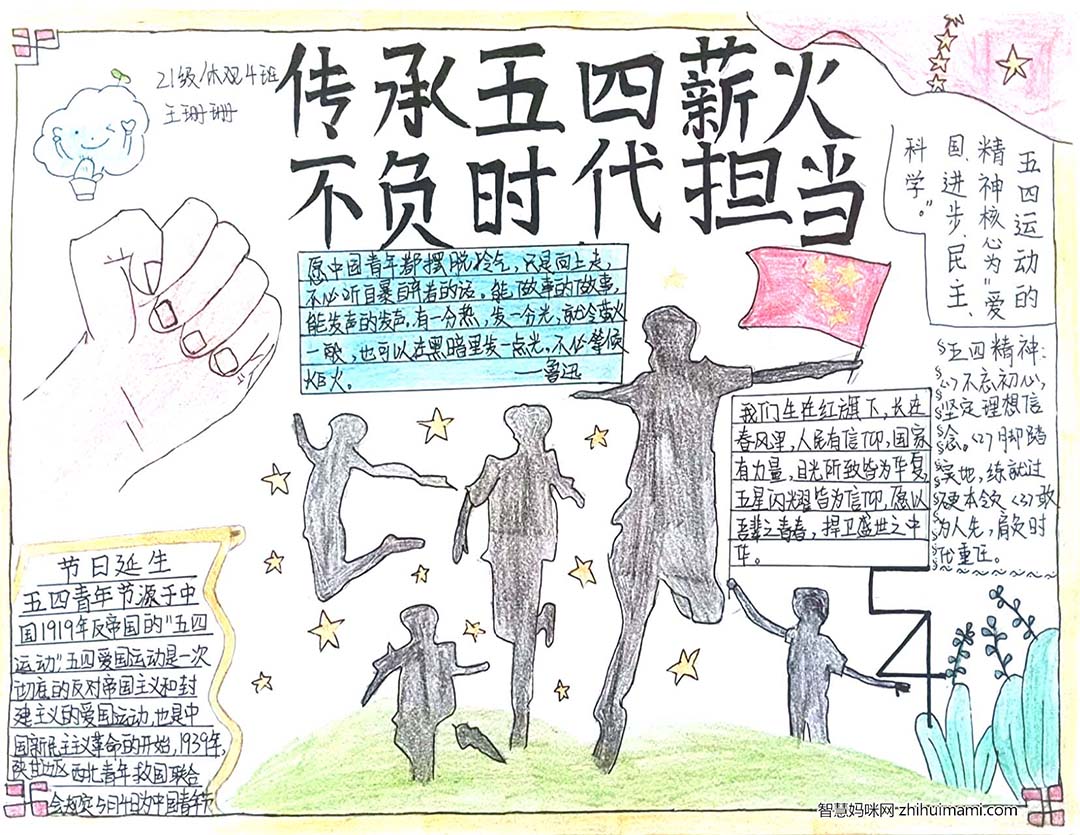 21级休观4班
王珊珊
传承五四薪火
不负时代担当
五四运动的
精神核心为“爱
国、进步、民主、
科学。”
愿中国青年都摆脱冷气，只是向上走，
不必听自暴自弃者的话。能做事的做事，
能发声的发声。有一分热，发一分光，就令萤火
一般，也可以在黑暗里发一点光。不必等候
炬火。 ——鲁迅
五四精神：
(1)不忘初心，
坚定理想信
念。(2)脚踏
实地，练就过
硬本领(3)敢
为人先，肩负时
代重任。
我们生在红旗下，长在
春风里，人民有信仰，国家
有力量，目光所致皆为华夏，
五星闪耀皆为信仰，愿以
吾辈之青春，捍卫盛世之中
华。
节日延生
五四青年节源于中
国1919年反帝国的“五四
运动”，五四爱国运动是一次
彻底的反对帝国主义和封
建主义的爱国运动，也是中
国新民主主义革命的开始，1939年，
陕甘边区西北青年救国联合
会规定5月4日为中国青年节
智慧妈咪网-zhihuimami.com